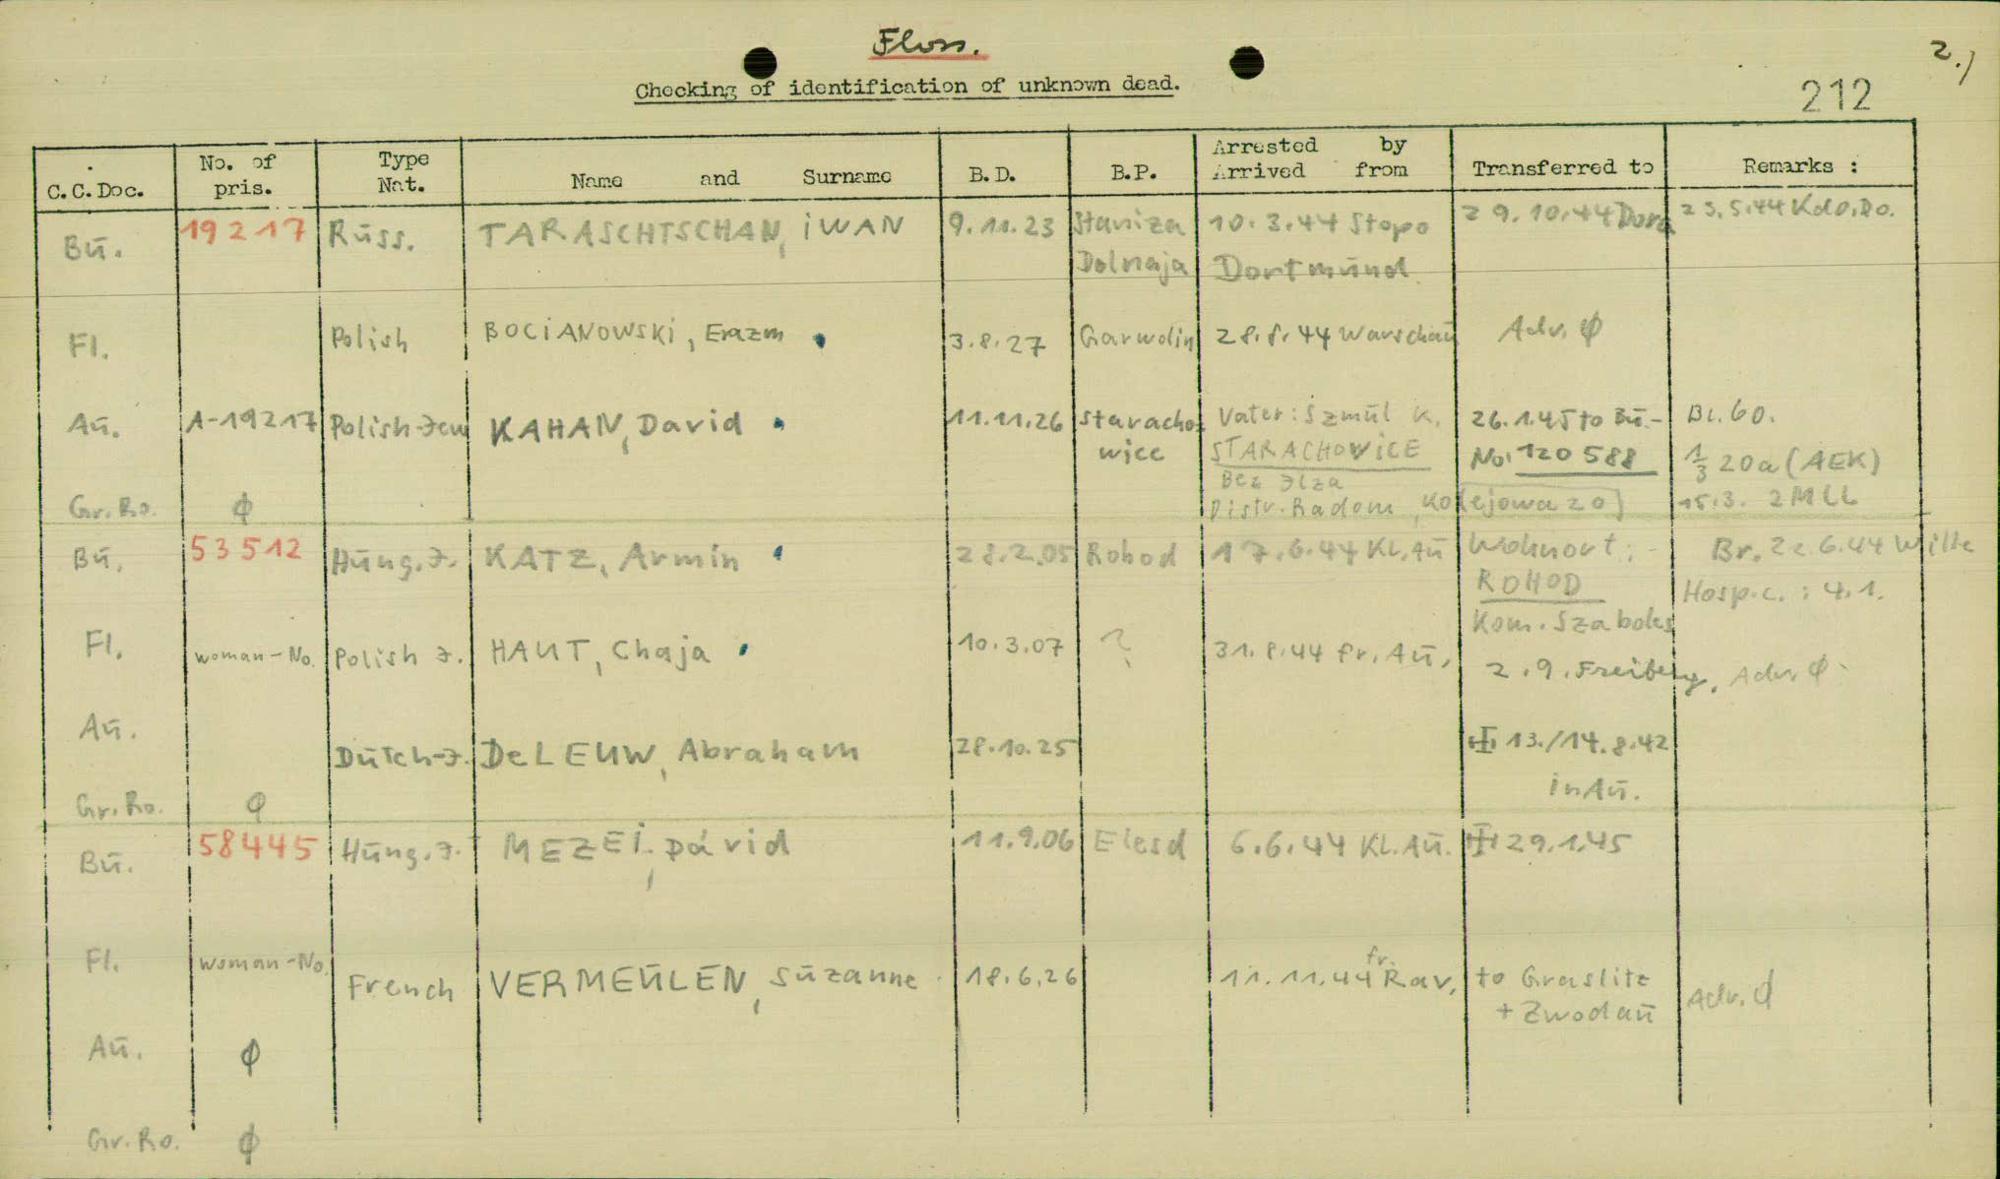 Floss.
2.)
Checking of identification of unknown dead.
212
C.C.Doc. No. of pris. Type Nat. Name and Surname B.D. B.P. Arrested by Arrived from Transferred to Remarks :
Bū. 19217 Rūss. TARASCHTSCHAN, iWAN 9.11.23 Staniza 10.3.44 Stapo 29.10.44 Dora 23.5.44 Kdo.Do.
Dolnaja Dortmūnd.
Fl. Polish BOCiANOWSKi, Erazm 3.8.27 Garwolin 28.8.44 Warschaū Adr. ϕ
Aū. A-19217 Polish-Jew KAHAN, David 11.11.26 Staracho= Vater: Szmūl K. 26.1.45 to Bū.- Bl. 60.
wice STARACHOWiCE No. 120588 1/3 20a (AEK)
Bez Jlza
Gr.Ro. ϕ Distr. Radom, Kolejowa 20 15.3. 2MLL
Bū. 53512 Hūng.J. KATZ, Armin 28.2.05 Rohod 17.6.44 Kl.Aū Wohnort: - Br. 22.6.44 Wille
ROHOD Hosp.c. : 4.1.
Kom. Szabolcs
Fl. woman-No. Polish J. HAUT, Chaja 10.3.07 ? 31.8.44 fr. Aū. 2.9. Freiberg, Adr. ϕ
Aū. Dūtch-J. DeLEUW, Abraham 28.10.25 13./14.8.42
in Aū.
Gr.Ro. ϕ
Bū. 58445 Hūng.J. MEZEi, Dávid 11.9.06 Elesd 6.6.44 KL.Aū. 29.1.45
Fl. woman-No. French VERMEŪLEN, Sūzanne 18.6.26 11.11.44 fr. Rav. to Graslitz
+ Zwodaū Adr. ϕ
Aū. ϕ
Gr.Ro. ϕ